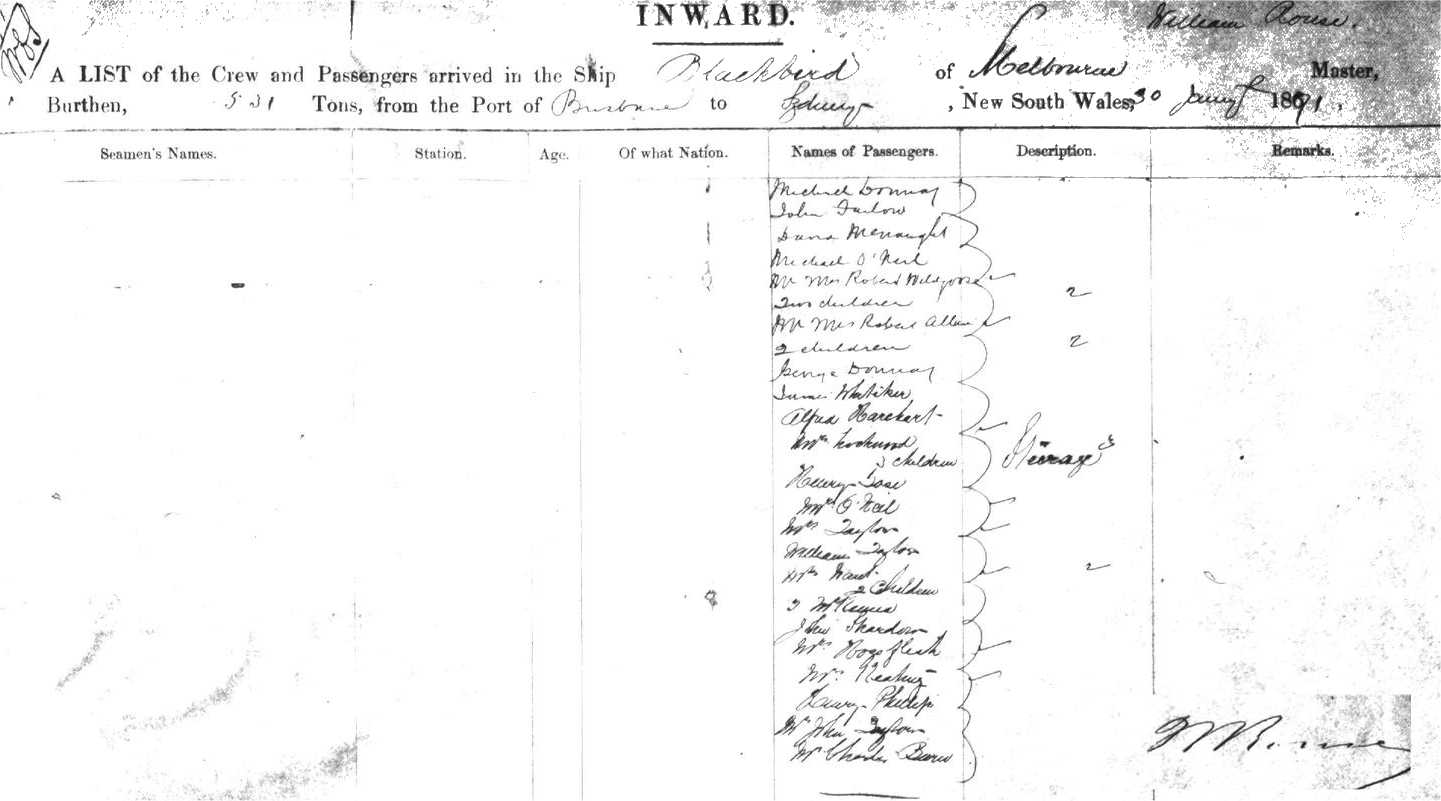 INWARD.
William Rouse.
A LIST of the Crew and Passengers arrived in the Ship Blackbird of Melbourne Master,
Burthen, 531 Tons, from the Port of Brisbane to Sydney, New South Wales, 30 Jany 1871.
Seamen's Names. Station. Age. Of what Nation. Names of Passengers. Description. Remarks.
Michael
John
McNaught
Michael O'Neil
Mr Mrs Robert Wildgoose
Two children 2
Mr Mrs Robert Allan
2 children 2
George
Whitiker
Mrs Lockwood
3 children Steerage
Henry
Mrs O'Neil
Mrs Taylor
William Taylor
Mrs 2
2 Children
2
John
Mrs Hogsflesh
Mrs Keating
Philip
Mr John Taylor
Mr Charles